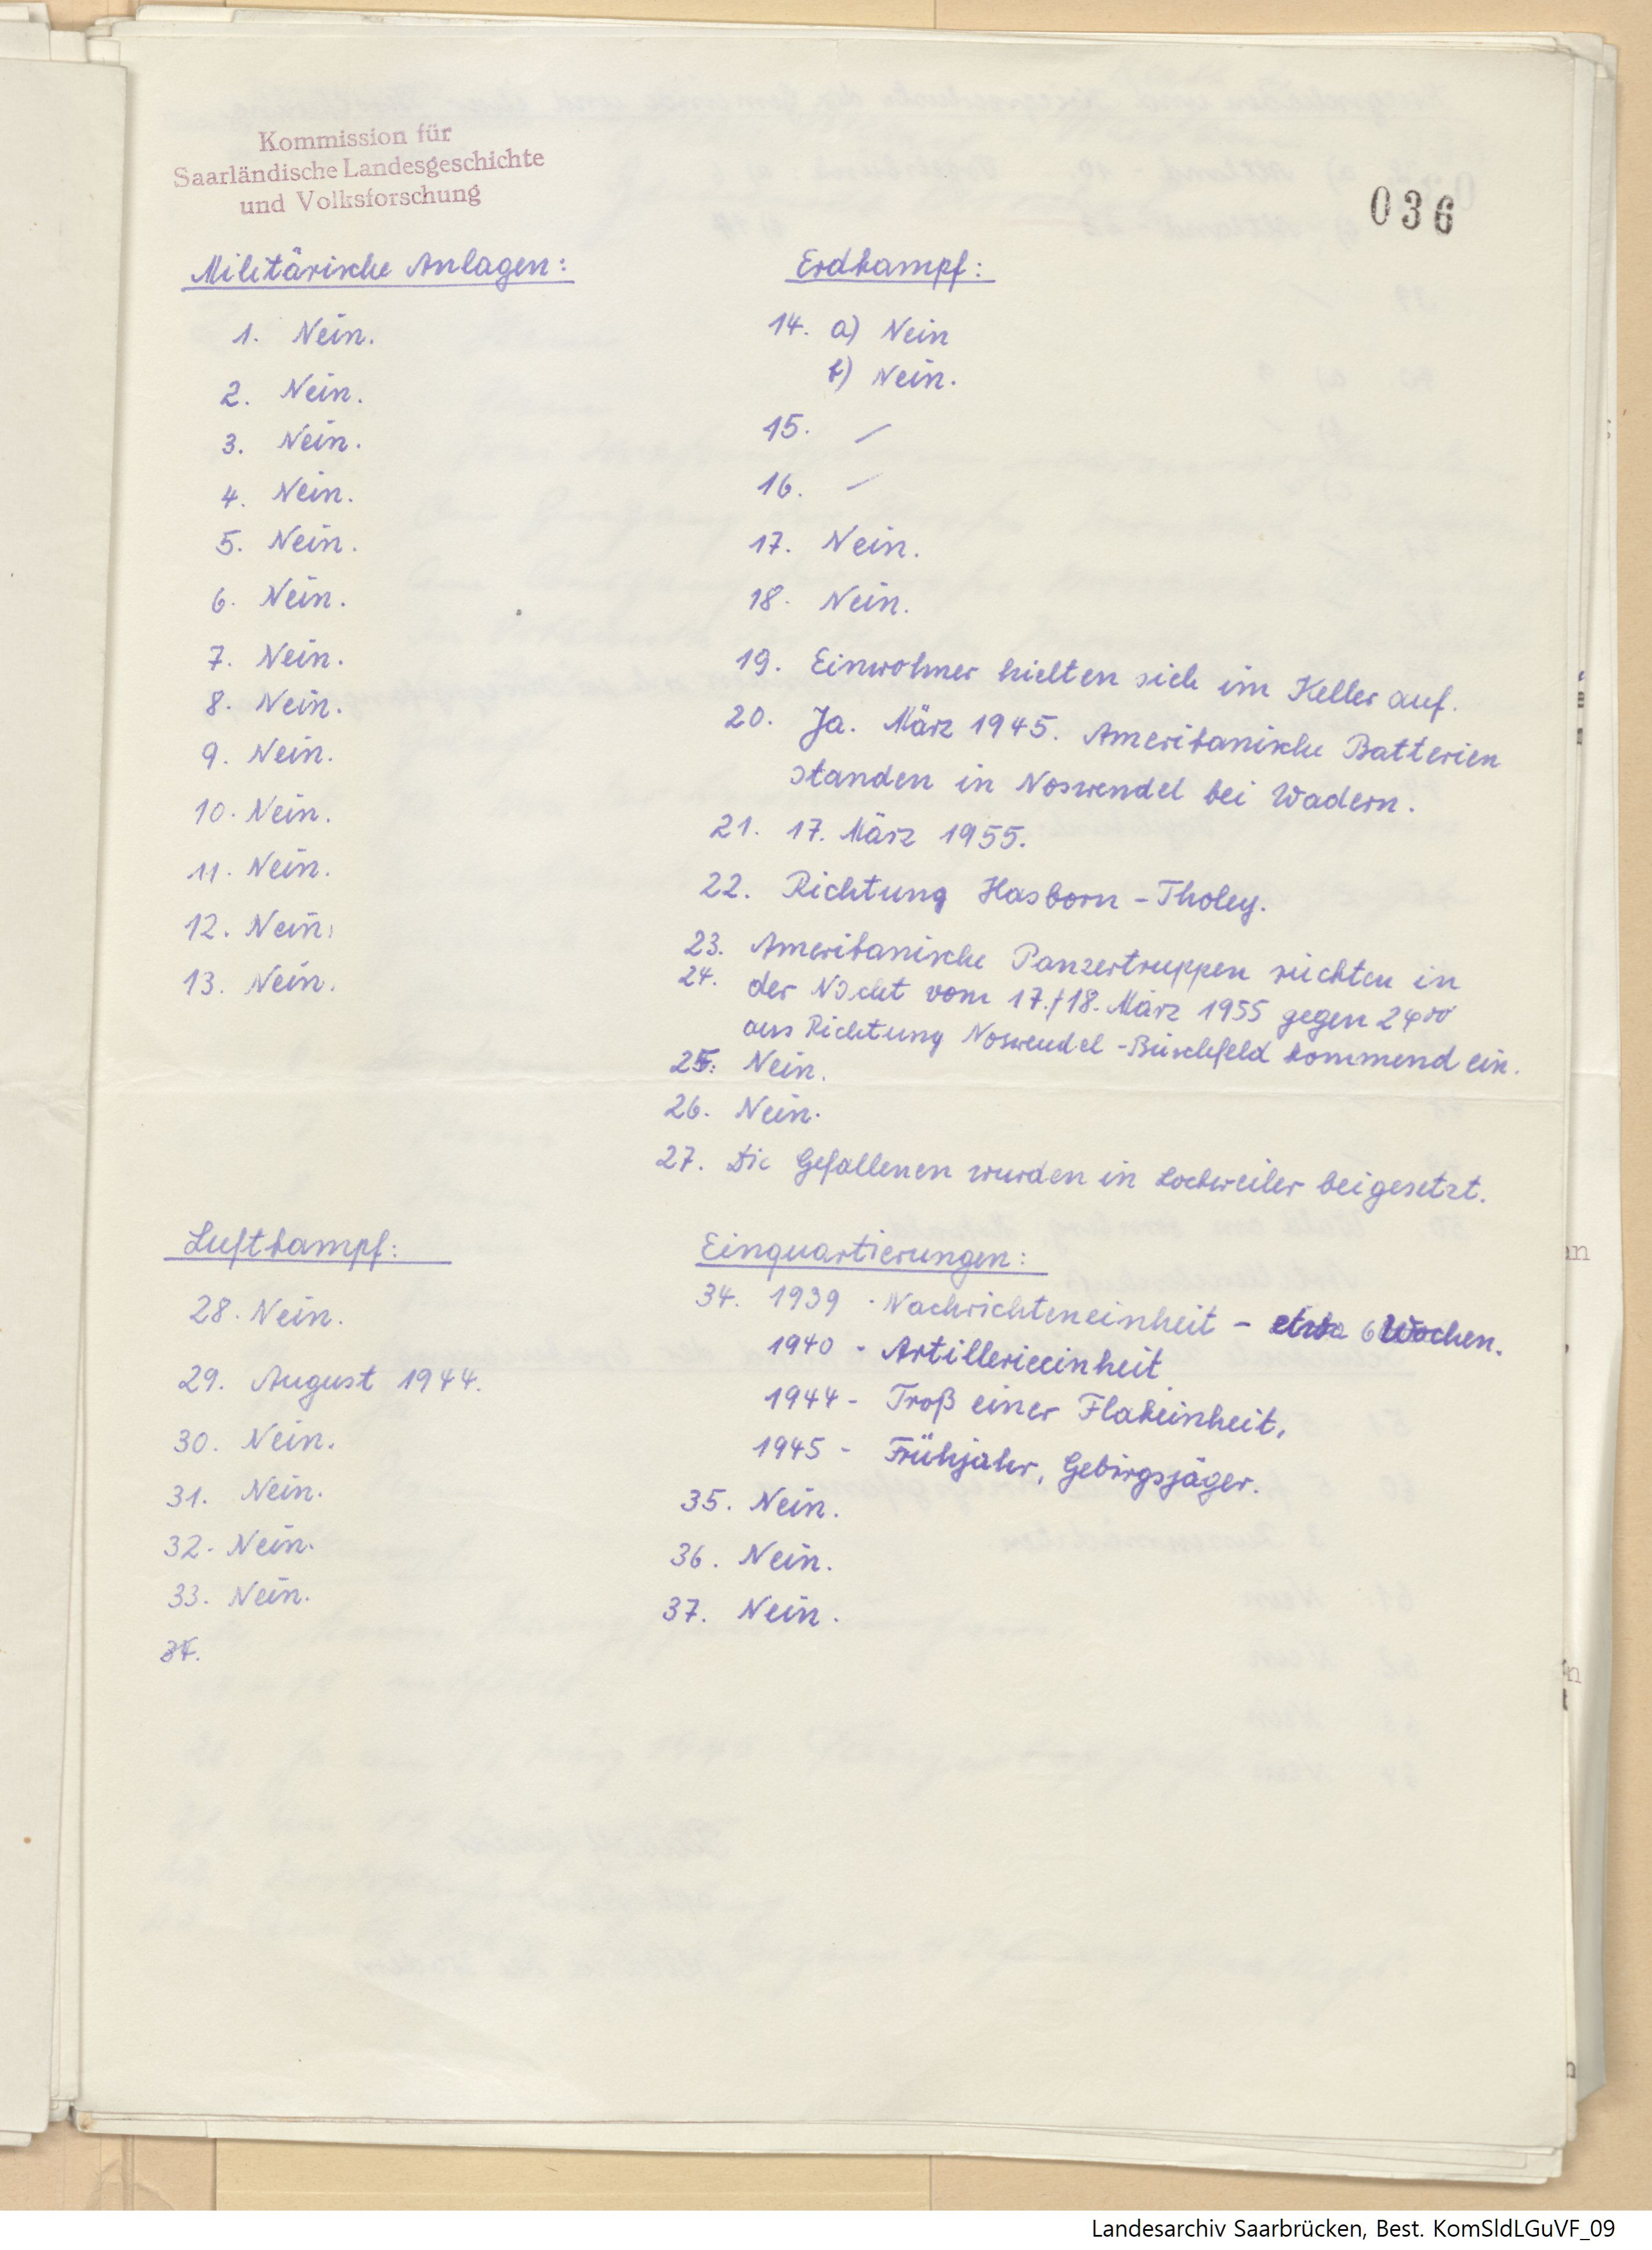 Kommission für
Saarländische Landesgeschichte
und Volksforschung
036
Militärische Anlagen:
1. Nein.
2. Nein.
3. Nein.
4. Nein.
5. Nein.
6. Nein.
7. Nein.
8. Nein.
9. Nein.
10. Nein.
11. Nein.
12. Nein.
13. Nein.
Erdkampf:
14. a) Nein
b) Nein.
15. /
16. /
17. Nein.
18. Nein.
19. Einwohner hielten sich im Keller auf.
20. Ja. März 1945. Amerikanische Batterien
standen in Noswendel bei Wadern.
21. 17. März 1955.
22. Richtung Hasborn - Tholey.
23. Amerikanische Panzertruppen rückten in
24. der Nacht vom 17./18. März 1955 gegen 24 00
aus Richtung Noswendel - Büschfeld kommend ein.
25. Nein.
26. Nein.
27. Die Gefallenen wurden in Lockweiler beigesetzt.
Luftkampf:
28. Nein.
29. August 1944.
30. Nein.
31. Nein.
32. Nein.
33. Nein.
34.
Einquartierungen:
34. 1939 - Nachrichteneinheit - etwa 6 Wochen.
1940 - Artillerieeinheit
1944 - Troß einer Flakeinheit,
1945 - Frühjahr, Gebirgsjäger.
35. Nein.
36. Nein.
37. Nein.
Landesarchiv Saarbrücken, Best. KomSldLGuVF_09